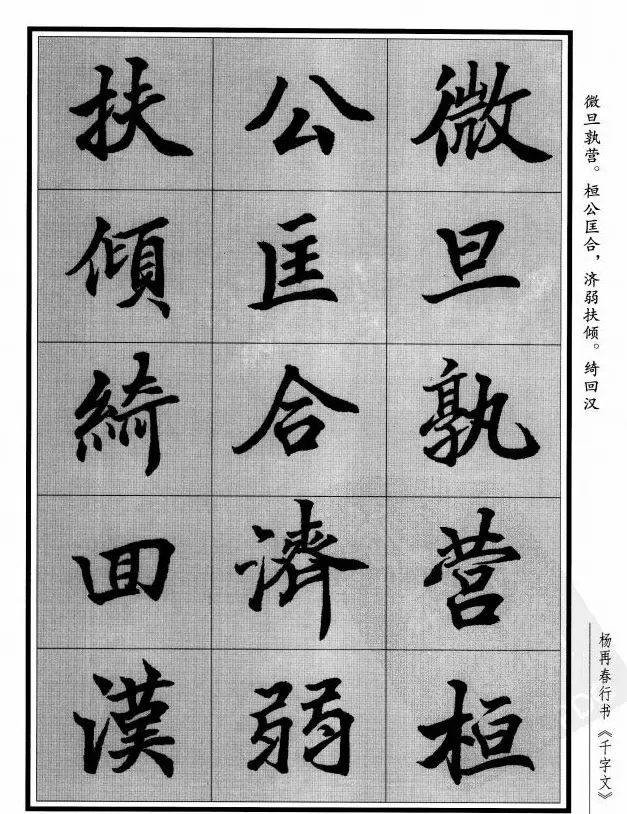 微旦孰营桓
公匡合濟弱
扶傾綺回漢
微旦孰营。桓公匡合，济弱扶倾。绮回汉
杨再春行书《千字文》